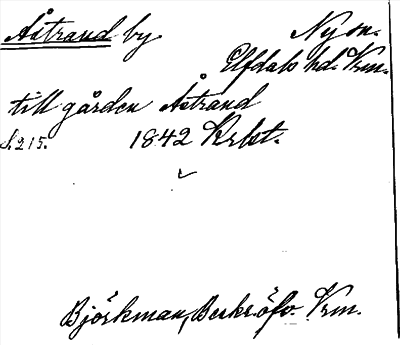 Åstrand by. Ny sn.
Elfdals hd. Vrm.
till gården Åstrand
S. 215. 1842 Krlst.
Björkman, Beskr. öfv. Vrm.